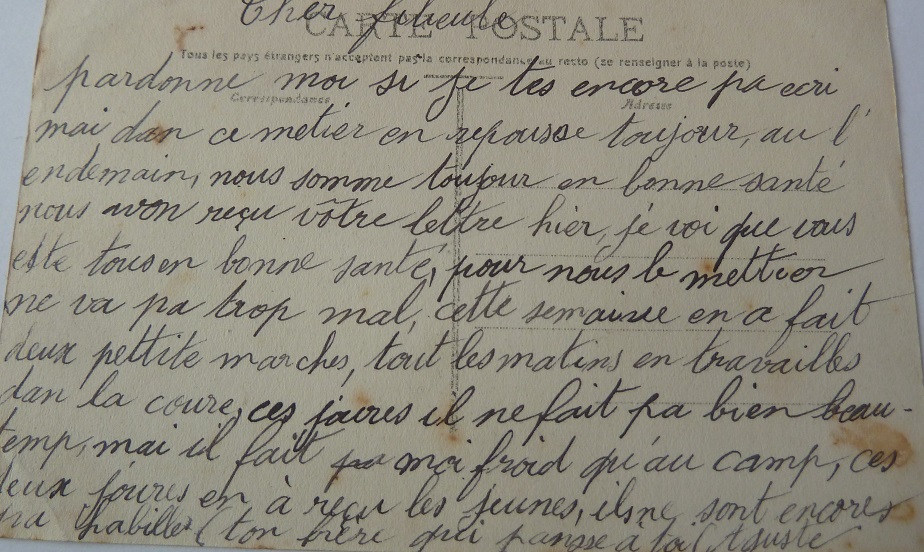 Cher filieule
CARTE POSTALE
Tous les pays étrangers n'acceptent pas la correspondance au recto (se renseigner à la poste)
pardonne moi si je tes encore pa ecri
Correspondance Adresse
mai dan ce metier en repousse toujour, au l'
endemain, nous somme toujour en bonne santé
nous avon reçu vôtre lettre hier, je voi que vous
este tous en bonne santé, pour nous le mettier
ne va pa trop mal, cette semaine en a fait
deux pettite marches, tout les matins en travailles
dan la coure, ces joures il ne fait pa bien beau-
temp, mai il fait moi froid qu'au camp, ces
deux joures en à reçu les jeunes, ils ne sont encores
pa habiller (ton frère qui pansse a toi (